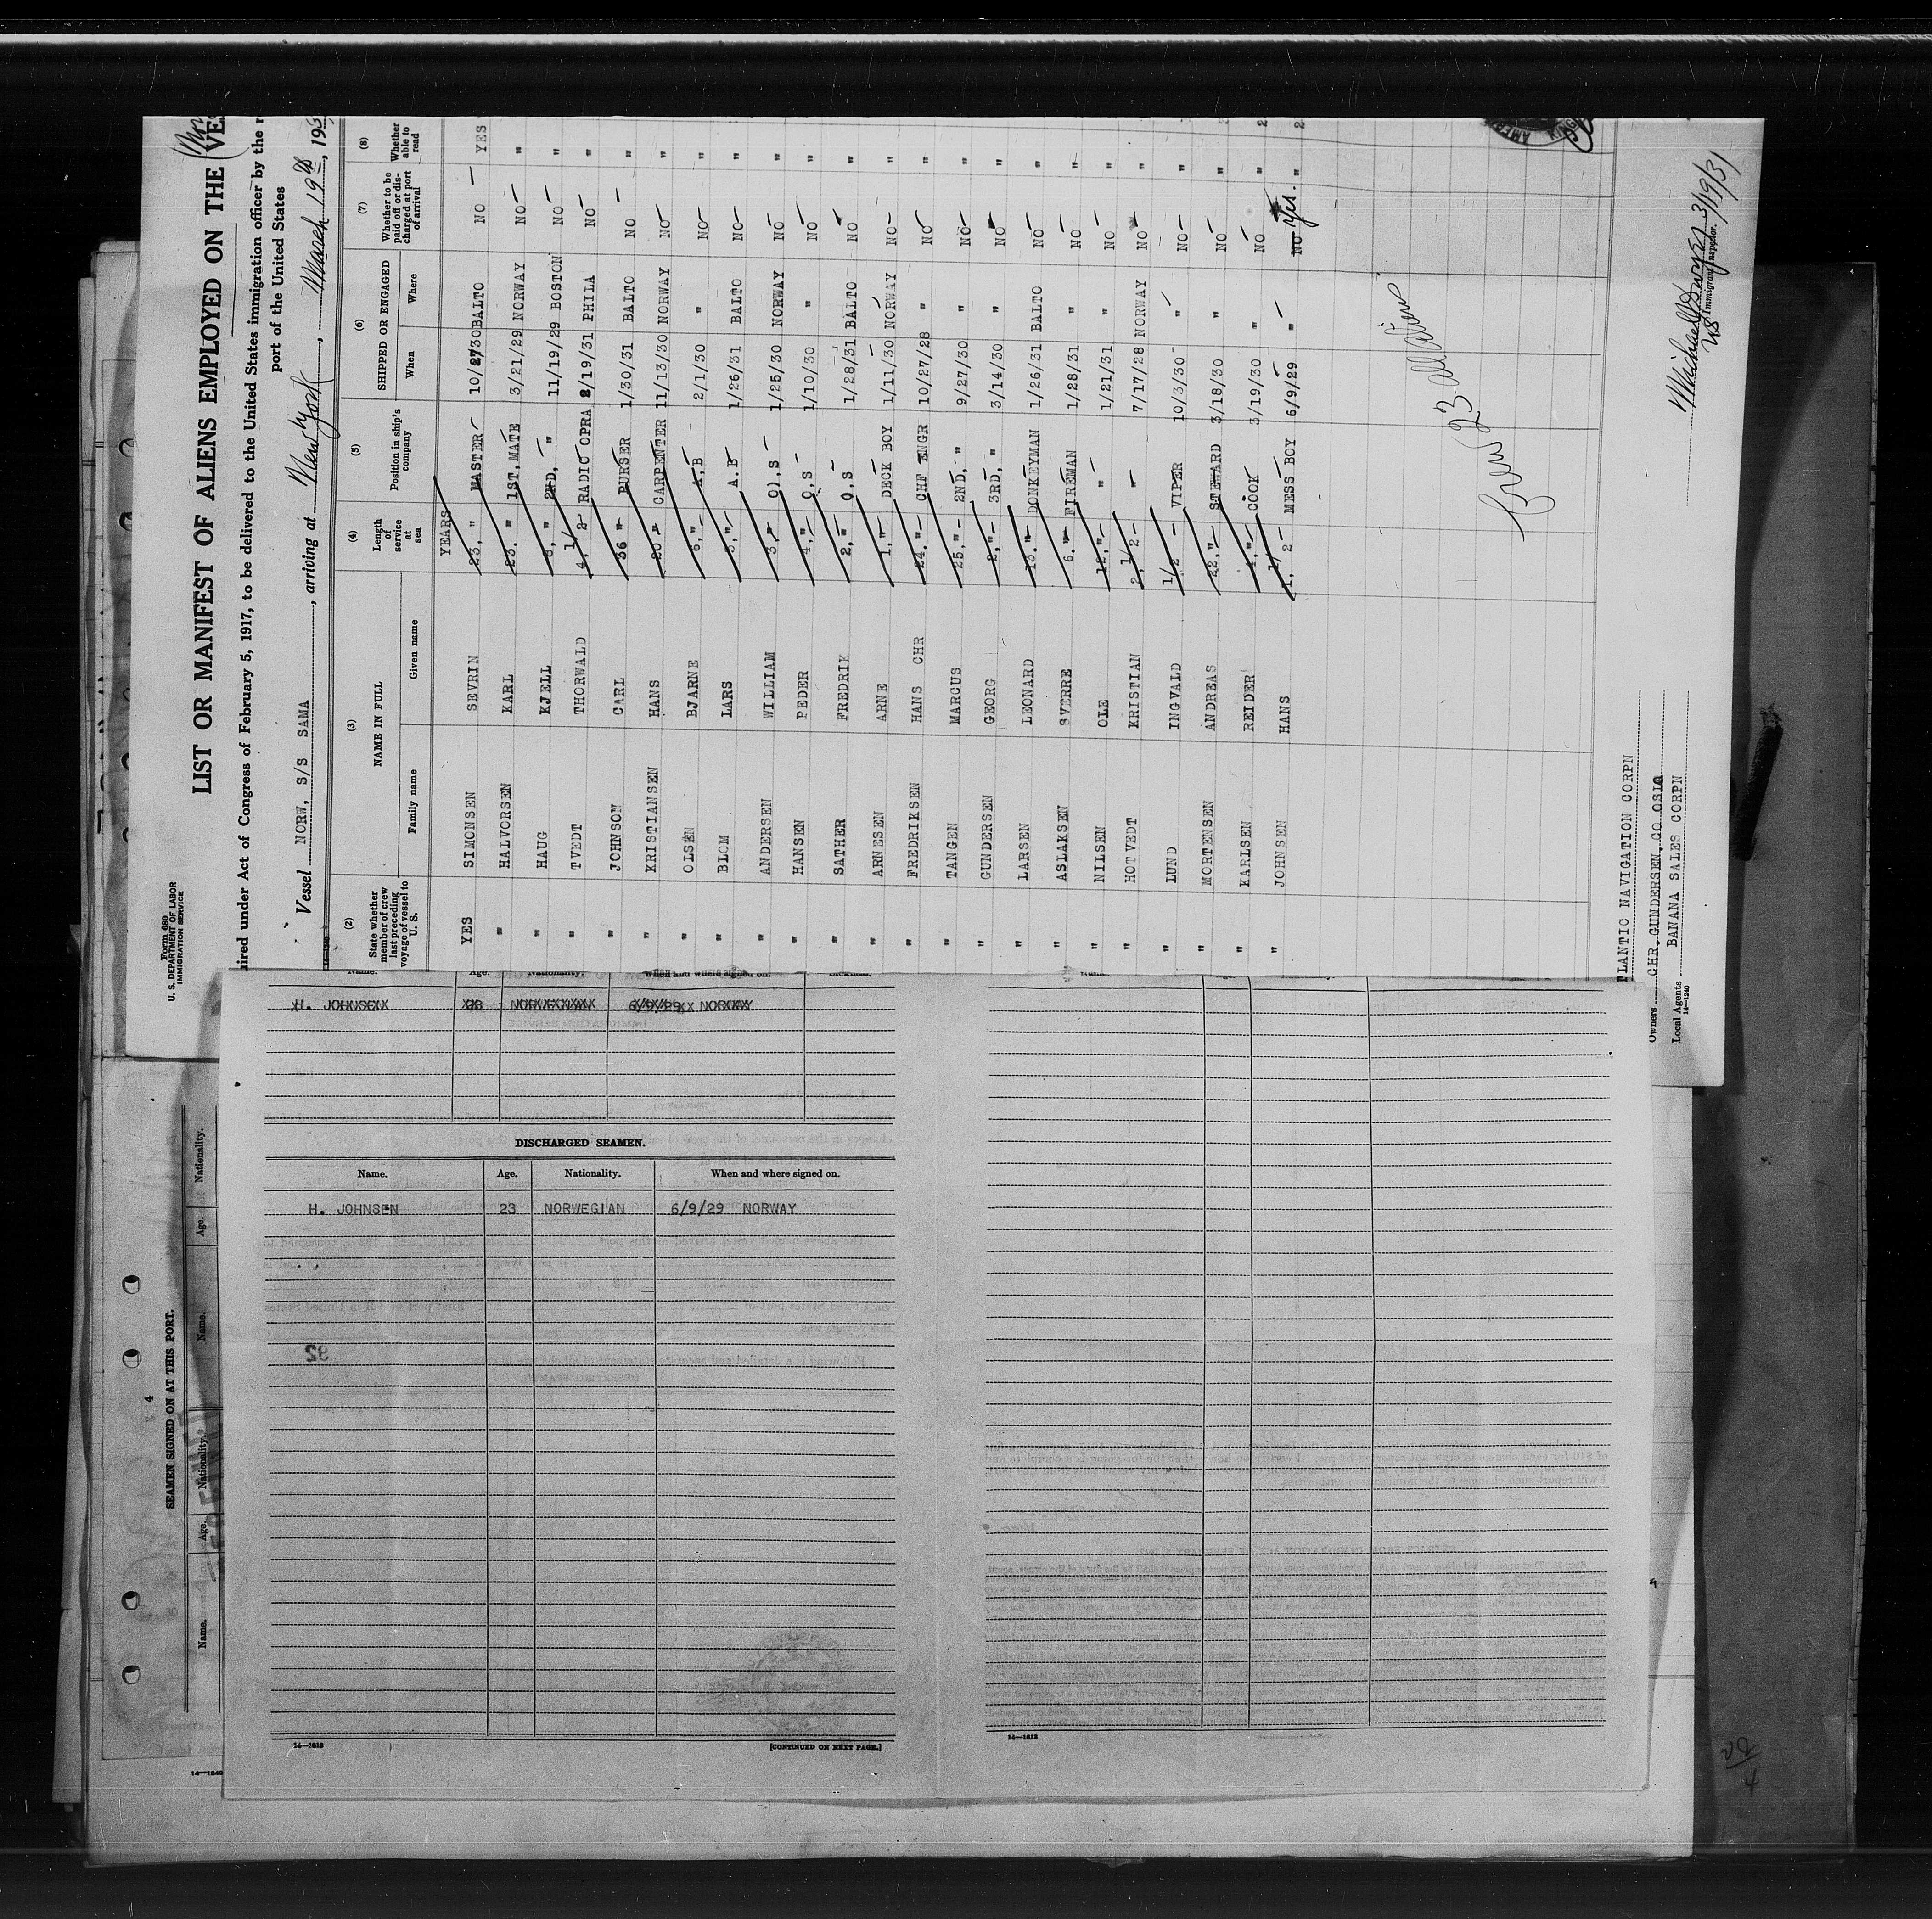 Form 680
U. S. DEPARTMENT OF LABOR
IMMIGRATION SERVICE
LIST OR MANIFEST OF ALIENS EMPLOYED ON THE
ired under Act of Congress of February 5, 1917, to be delivered to the United States immigration officer by the
port of the United States
Vessel NORW, S/S SAMA, arriving at New York, March 19th, 193
(2) (3) (4) (5) (6) (7) (8)
State whether member of crew last preceding voyage of vessel to U. S.
NAME IN FULL
Family name Given name
Length of service at sea
Position in ship's company
SHIPPED OR ENGAGED
When Where
Whether to be paid off or discharged at port of arrival
Whether able to read
YEARS
YES SIMONSEN SEVRIN 23, " MASTER 10/27/30 BALTO NO YES
" HALVORSEN KARL 23. " 1ST, MATE 3/21/29 NORWAY NO "
" HAUG KJELL 6, " 2ND, " 11/19/29 BOSTON NO "
" TVEDT THORWALD 4, 1/2 RADIO OPRA 2/19/31 PHILA NO "
" JOHNSON CARL 36 " PURSER 1/30/31 BALTO NO "
" KRISTIANSEN HANS 20 " CARPENTER 11/13/30 NORWAY NO "
" OLSEN BJARNE 6, " A,B 2/1/30 " NO "
" BLOM LARS " A.B 1/26/31 BALTO NO "
" ANDERSEN WILLIAM 3, " O,S 1/25/30 NORWAY NO "
" HANSEN PEDER 4, " O,S 1/10/30 " NO "
" SATHER FREDRIK 2, " O,S 1/28/31 BALTO NO "
" ARNESEN ARNE 1, " DECK BOY 1/11/30 NORWAY NO "
" FREDRIKSEN HANS CHR 24. " CHF ENGR 10/27/28 " NO "
" TANGEN MARCUS 25, " 2ND, " 9/27/30 " NO "
" GUNDERSEN GEORG 2, " 3RD, " 3/14/30 " NO "
" LARSEN LEONARD 13. " DONKEYMAN 1/26/31 BALTO NO "
" ASLAKSEN SVERRE 6. " FIREMAN 1/28/31 " NO "
" NILSEN OLE 12, " " 1/21/31 " NO "
" HOTVEDT KRISTIAN 2, 1/2 " 7/17/28 NORWAY NO "
" LUND INGVALD 1/2 VIPER 10/3/30 " NO "
" MORTENSEN ANDREAS 22, " STEWARD 3/18/30 NO "
" KARLSEN REIDER " COOK 3/19/30 " NO "
" JOHNSEN HANS 1, 1/2 MESS BOY 6/9/29 " NO Yes. "
Crew 23 all aliens
TLANTIC NAVIGATION CORPN
Owners CHR. GUNDERSEN, CO OSLO
Local Agents BANANA SALES CORPN
14—1240
3/19/31
Immigrant Inspector.
Name. Age. Nationality. When and where signed on. Sickness.
H. JOHNSEN 23 6/9/29 NORWAY
DISCHARGED SEAMEN.
Name. Age. Nationality. When and where signed on.
H. JOHNSEN 23 NORWEGIAN 6/9/29 NORWAY
14—1613
[CONTINUED ON NEXT PAGE.]
14—1613
4
SEAMEN SIGNED ON AT THIS PORT.
Name. Age. Nationality. Name. Age. Nationality.
14—1240